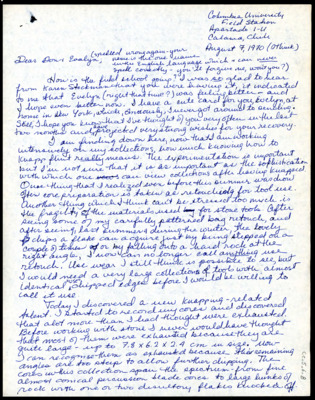 Columbia University
Field Station
Apartado 1-U
Calama, Chile
August 9, 1970 (I think)
Dear Don & Evalyn, (spelled wrong again - your
name is the one name
in the English language which I can never
spell correctly - you'll forgive me, won't you?)
How is the field school going? I was so glad to hear
from Karen Steelman that you were having it, it indicated
to me that Evelyn (right this time?) was feeling better - and
I hope even better now. I have a cute card for you Evelyn, at
home in New York which, obviously, I never got around to sending.
Still, I hope you know that I've thought of you very often in the last
two months and projected very strong wishes for your recovery.
I am finding down here, now that I am working
intensively on my collections, how much knowing how to
knapp flint really means. The experimentation is important
but I'm not sure that it is as important as the sophistication
with which one can view collections after having knapped.
One thing that I realized even before this summer was that
fire preparation is taken so often for tool use.
Another thing which I think can't be stressed too much is
the fragility of the materials used for stone tools. After
seeing some of my carefully bettered bag retouch, and
after seeing, last summer &during the winter, the lovely
chips a flake can acquire just by being stepped on a
couple of times or by my falling onto a hard rock at the
right angle, I now can no longer call anything use
retouch. Use wear I still think is possible to see, but
I would need a very large collection of tools with almost
identical chipped edges before I would be willing to
call it use.
Today I discovered a new knapping-related
talent. I started to record my cores and discovered
that alot more than I had thought were exhausted.
Before working with stone I never would have thought
that most of them were exhausted because they are
quite large - up to 7.8 x 6.2 x 2.4 cm in size. Now
I can recognize them as exhausted because the remaining
angles are too steep to allow further chipping. The
cores in this collection span the spectrum - from fine
almost conical percussion blade ones to large hunks of
rock with one or two desultory flakes knocked off